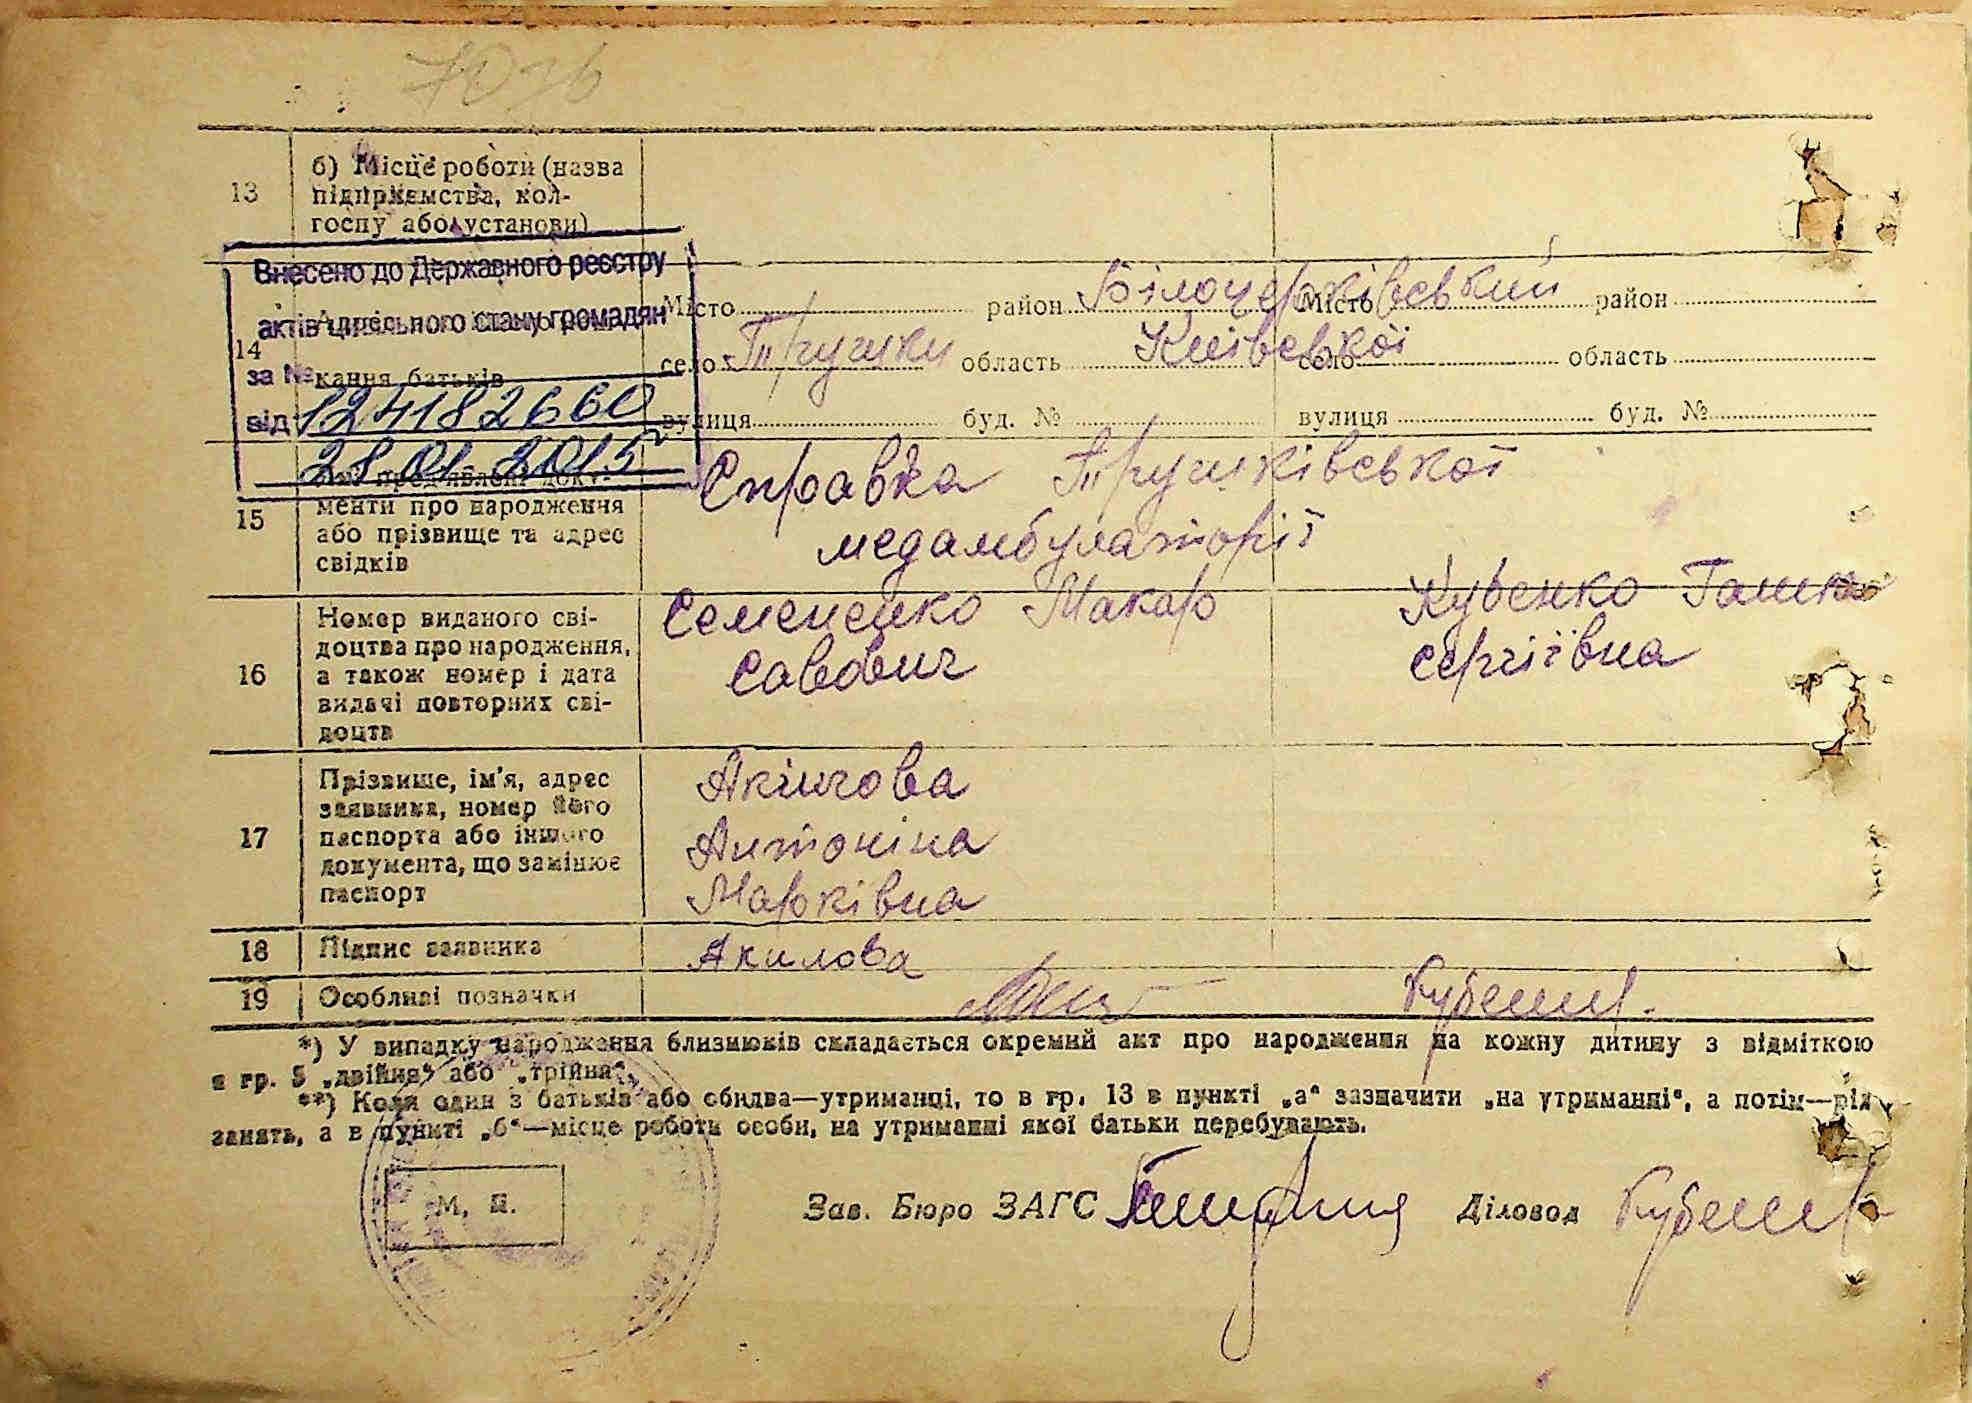 13
б) Місце роботи (назва
підприємства, кол-
госпу або установи)
Внесено до Державного реєстру
актів цивільного стану громадян
за №
124182660
від
28 01 2015
14
кання батьків
Місто район Білоцерківський
село Трушки область Київської
вулиця буд. №
Місто район
село область
вулиця буд. №
15
менти про народження
або прізвище та адрес
свідків
Справка Трушківської
медамбулаторії
16
Номер виданого сві-
доцтва про народження,
а також номер і дата
видачі повторних сві-
доцтв
Семененко Макар
Савович
Кубенко Ганна
Сергіївна
17
Прізвище, ім'я, адрес
заявника, номер його
паспорта або іншого
документа, що замінює
паспорт
Акілова
Антоніна
Марківна
18
Підпис заявника
Акилова
19
Особливі позначки
*) У випадку народження близнюків складається окремий акт про народження на кожну дитину з відміткою
в гр. 5 „двійня“ або „трійня“.
**) Коли один з батьків або обидва—утриманці, то в гр. 13 в пункті „а“ зазначити „на утриманні“, а потім—рід
занять, а в пункті „б“—місце роботи особи, на утриманні якої батьки перебувають.
М. П.
Зав. Бюро ЗАГС
Діловод